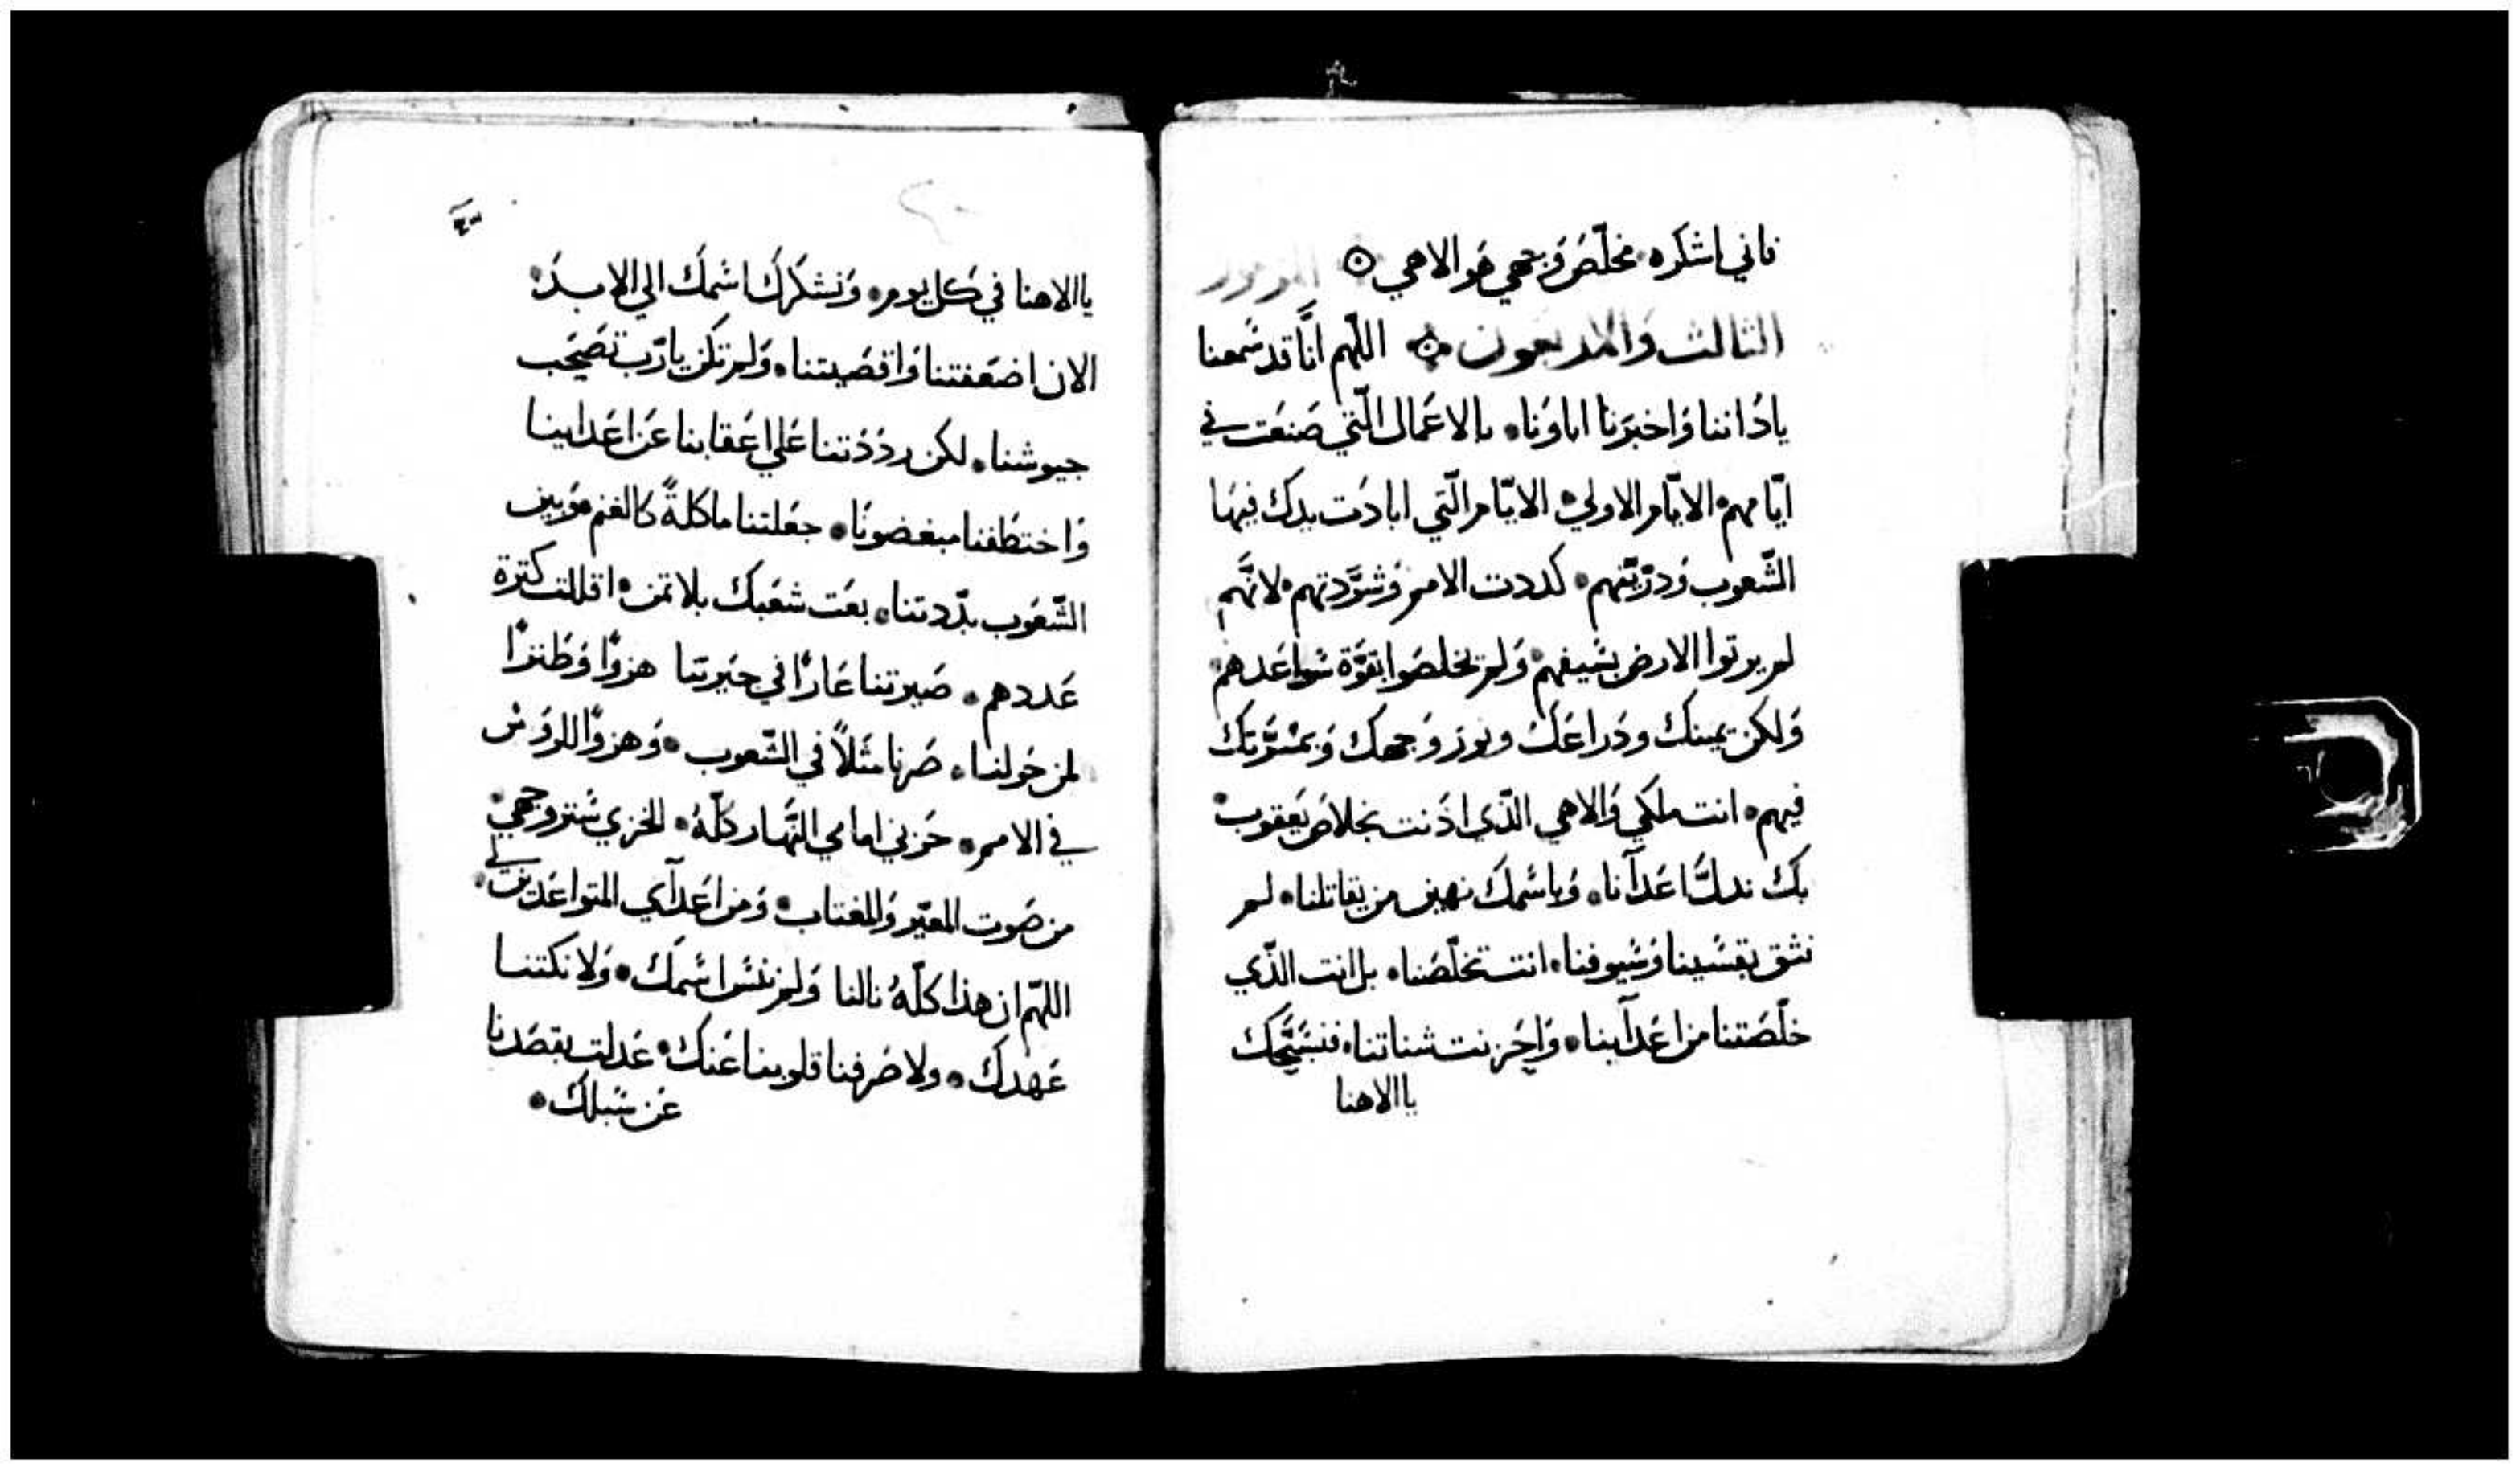 فاني اشكره مخلّص وجهي هو الاهي ۞ المزمور
الثالث والاربعون ۞ اللّهم انّا قد سمعنا
باداننا واخبرنا اباونا بالاعمال الّتي صنعت في
ايّامهم الايّام الاولي الايّام الّتي ابادت يدك فيها
الشّعوب ودرّيّتهم كددت الامم وشرّدتهم لانّهم
لم يرتوا الارض بسيفهم ولم يخلصوا بقوّة سواعدهم
ولكن يمينك ودراعك ونور وجهك وبمسرّتك
فيهم انت ملكي والاهي الّذي اذنت بخلاص يعقوب
بك ندلّ اعدآنا وباسمك نهين من يقاتلنا لم
نثق بقسينا وسيوفنا انت تخلّصنا بل انت الّذي
خلّصتنا من اعدآينا واخزنت شناتنا فنسبّحك
ياالاهنا
ياالاهنا في كل يوم ونشكرك اسمك الي الابد
الان اضعفتنا واقصيتنا ولم تكن يا ربّ تصحب
جيوشنا لكن رددتنا علي اعقابنا عن اعداينا
واختطفنا مبغضونا جعلتنا ماكلةً كالغنم وبين
الشّعوب بدّدتنا بعت شعبك بلا تمن اقللت كترة
عددهم صيرتنا عارًا في جيرتنا هزوًا وطنزًا
لمن حولنا صرنا مثلاً في الشّعوب وهزوًا للروس
في الامم حزني امامي النّهار كلّهُ الخزي ستر وجهي
من صوت المعيّر والمغتاب ومن اعدآي المتواعدين لي
اللّهم ان هذا كلّهُ نالنا ولم ننس اسمك ولا نكتنا
عهدك ولا صرفنا قلوبنا عنك عدلت بقصدنا
عن سبلك